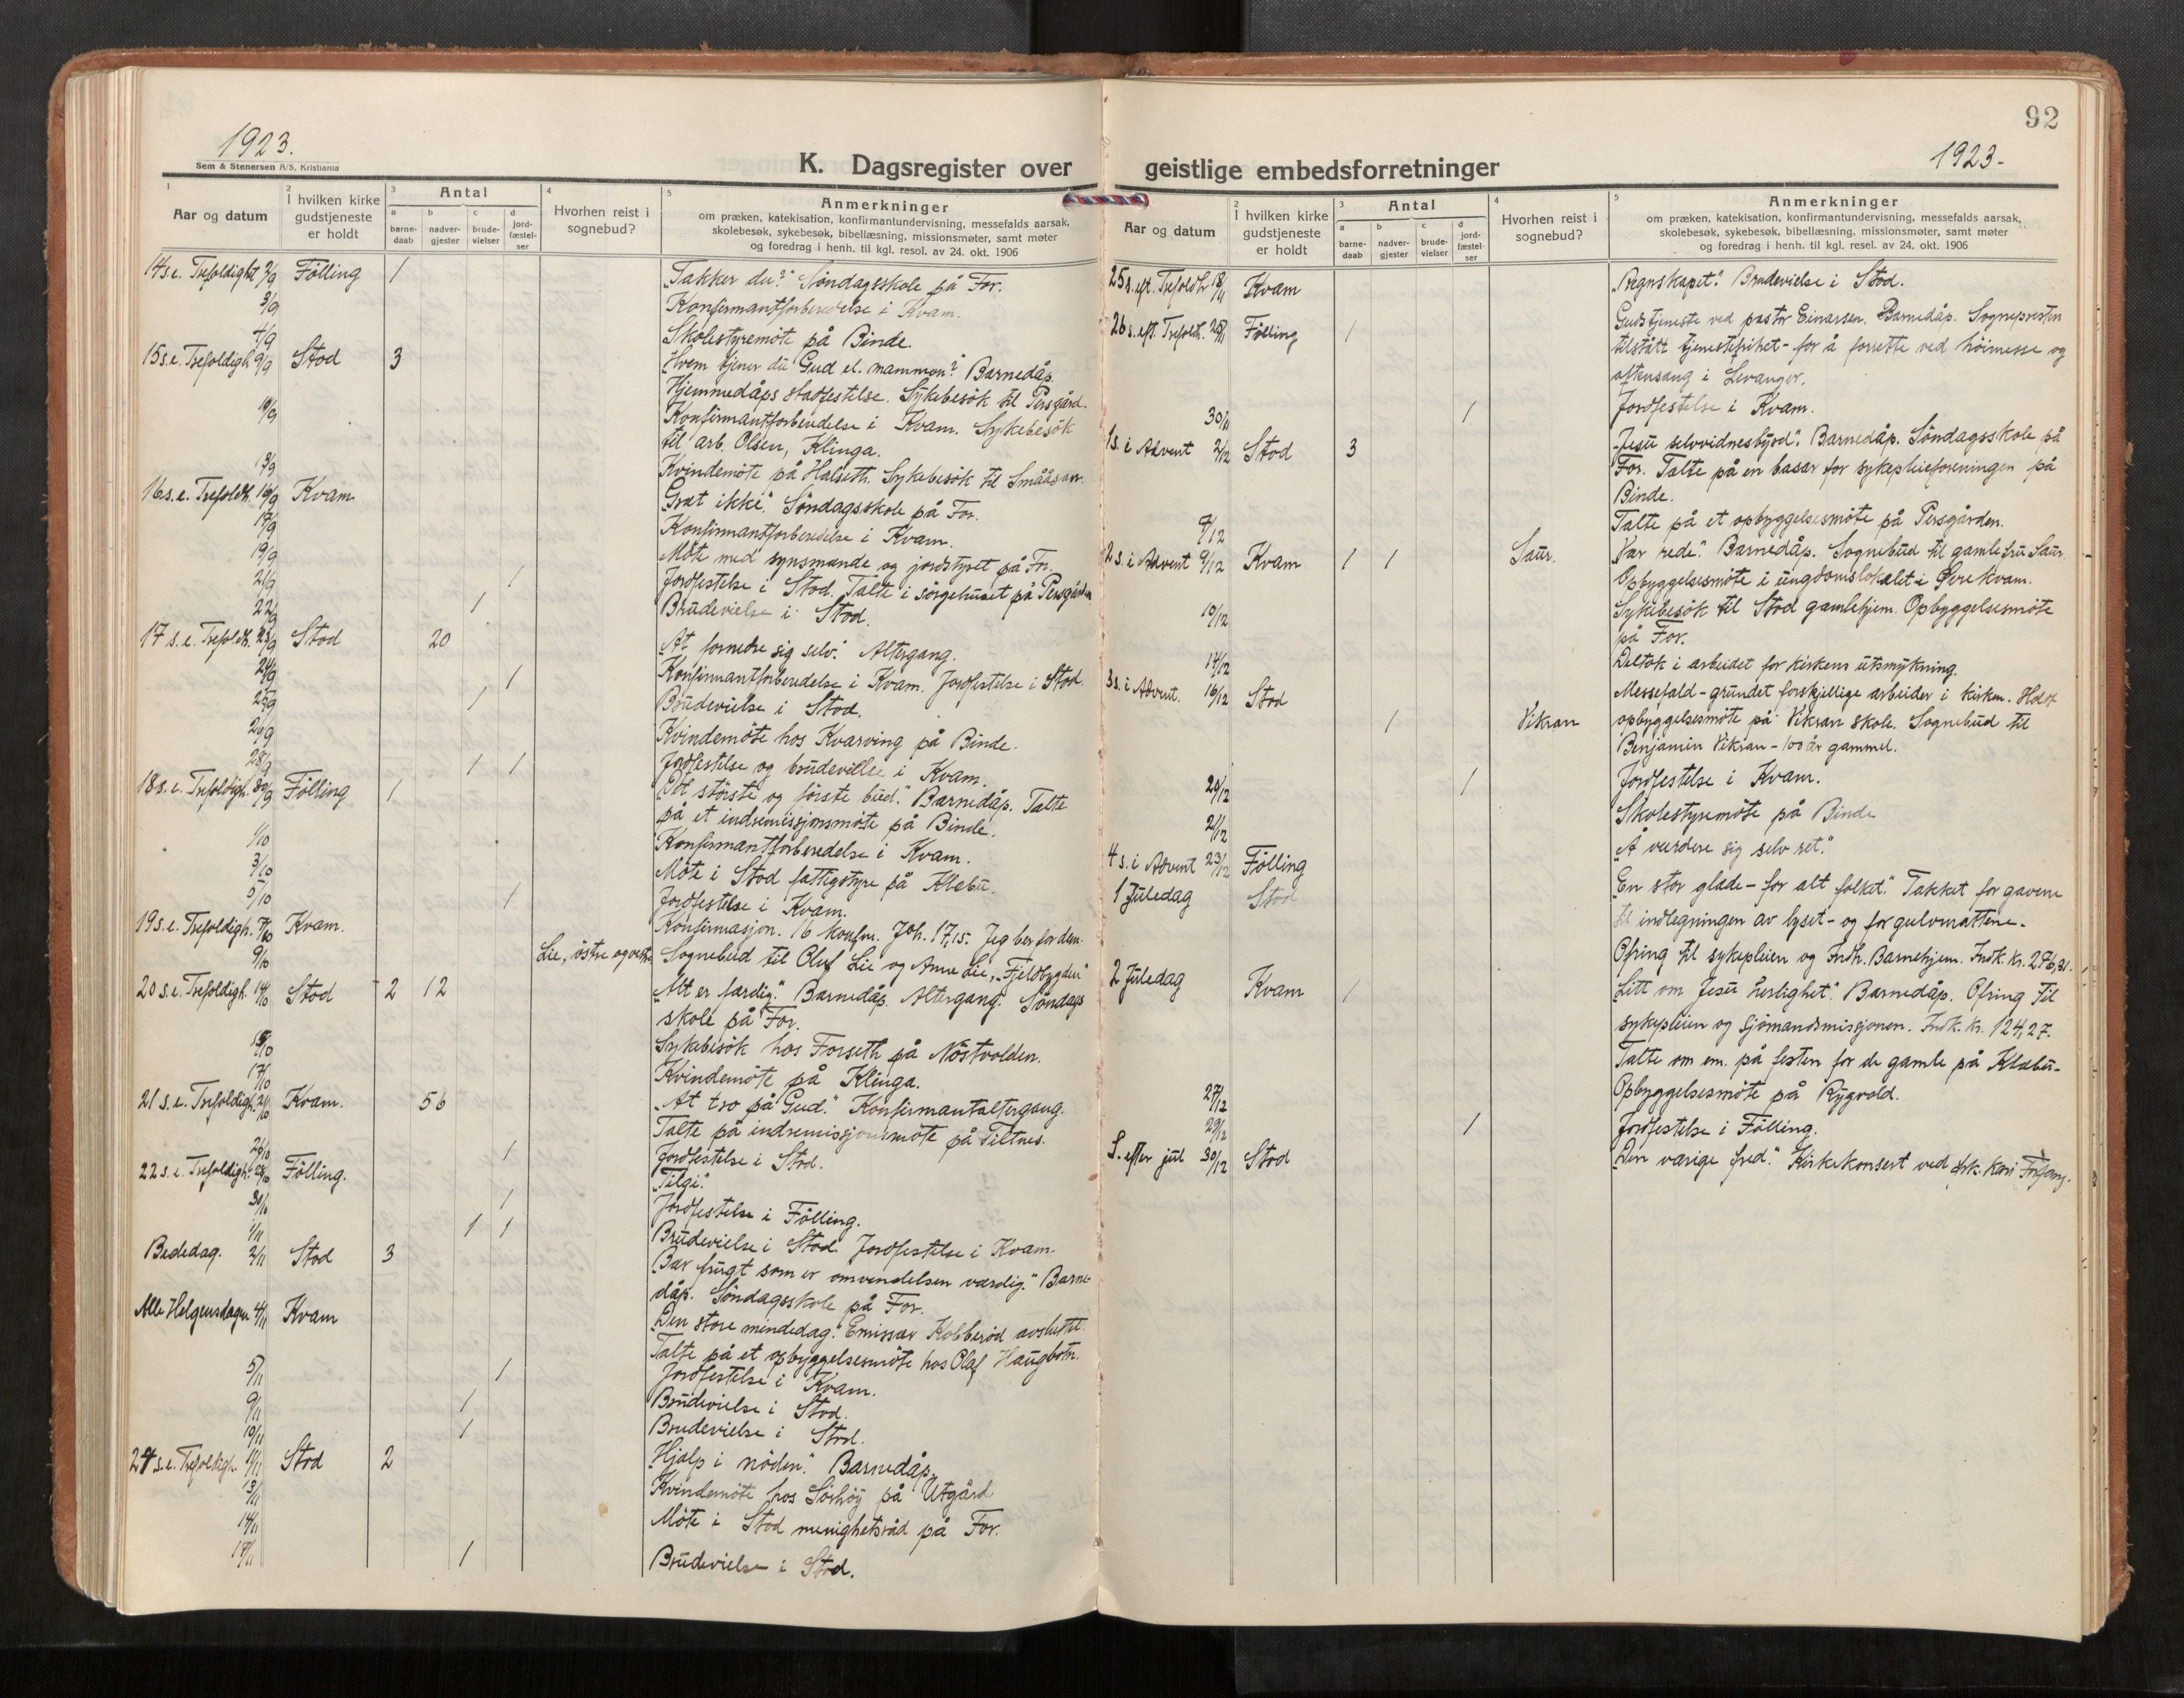 1923.
Sem & Stenersen A/S, Kristiania
K. Dagsregister over
1 Aar og datum
2 I hvilken kirke gudstjeneste er holdt
3 Antal
a barne-daab
b nadver-gjester
c brude-vielser
d jord-fæstel-ser
4 Hvorhen reist i sognebud?
5 Anmerkninger
om præken, katekisation, konfirmantundervisning, messefalds aarsak,
skolebesøk, sykebesøk, bibellæsning, missionsmøter, samt møter
og foredrag i henh. til kgl. resol. av 24. okt. 1906
14 s.e. Trefoldight 2/9 Fölling 1 "Takker du?" Söndagsskole på For.
3/9 Konfirmantforberedelse i Kvam.
4/9 Skolestyremöte på Binde.
15 s.e. Trefoldigh. 9/9 Stod 3 Hvem tjener du Gud el. mammon? Barnedåp.
Hjemmedåps stadfestelse. Sykebesök til Persgård.
10/9 Konfirmantforberedelse i Kvam. Sykebesök
til arb. Olsen, Klinga.
13/9 Kvindemöte på Halseth. Sykebesök til Smååsan.
16 s.e. Trefoldh. 16/9 Kvam "Gråt ikke." Söndagsskole på For.
17/9 Konfirmantforberedelse i Kvam.
19/9 Möte med synsmænde og jordstyret på For.
21/9 1 Jordfestelse i Stod. Talte i sörgehuset på Persgården
22/9 1 Brudevielse i Stod.
17 s.e. Trefoldh. 23/9 Stod 20 "At fornedre sig selv." Altergang.
24/9 1 Konfirmantforberedelse i Kvam. Jordfestelse i Stod.
25/9 1 Brudevielse i Stod.
26/9 Kvindemöte hos Kvarving på Binde.
28/9 1 1 Jordfestelse og brudevielse i Kvam.
18 s.e. Trefoldigh. 30/9 Fölling 1 "Det störste og förste bud." Barnedåp. Talte
på et indremissjonsmöte på Binde.
1/10 Konfirmantforberedelse i Kvam.
3/10 Möte i Stod fattigstyre på Klæbu.
5/10 1 Jordfestelse i Kvam.
19 s.e. Trefoldigh. 7/10 Kvam. Konfirmasjon. 16 konfm. Joh. 17,15. Jeg ber for dem.
9/10 Lie, östre og vestre Sognebud til Oluf Lie og Anne Lie, "Fjeldbygden"
20 s.e. Trefoldigh. 14/10 Stod 2 12 "Alt er færdig." Barnedåp. Altergang. Söndags
skole på For.
15/10 Sykebesök hos Forseth på Nöstvolden.
17/10 Kvindemöte på Klinga.
21 s.e. Trefoldigh. 21/10 Kvam. 56 "At tro på Gud." Konfirmantaltergang.
Talte på indremissjonsmöte på Tiltnes.
26/10 1 Jordfestelse i Stod.
22 s.e. Trefoldigh. 28/10 Fölling. "Tilgi."
30/10 1 Jordfestelse i Fölling.
1/11 1 1 Brudevielse i Stod. Jordfestelse i Kvam.
Bededag. 2/11 Stod 3 "Bær frugt som er omvendelsen værdig." Barne-
dåp. Söndagsskole på For.
Alle Helgensdagen 4/11 Kvam "Den store mindedag." Emissær Kobberöd avsluttet.
Talte på et opbyggelsesmöte hos Olaf Haugbotn.
5/11 1 Jordfestelse i Kvam.
9/11 1 Brudevielse i Stod.
10/11 1 Brudevielse i Stod.
24 s.e. Trefoldigh. 11/11 Stod 2 "Hjælp i nöden." Barnedåp.
13/11 Kvindemöte hos på Utgård
14/11 Möte i Stod menighetsråd på For.
17/11 1 Brudevielse i Stod.
92
1923-
geistlige embedsforretninger
Aar og datum
2 I hvilken kirke gudstjeneste er holdt
3 Antal
a barne-daab
b nadver-gjester
c brude-vielser
d jord-fæstel-ser
4 Hvorhen reist i sognebud?
5 Anmerkninger
om præken, katekisation, konfirmantundervisning, messefalds aarsak,
skolebesøk, sykebesøk, bibellæsning, missionsmøter, samt møter
og foredrag i henh. til kgl. resel. av 24. okt. 1906
25 s. eft. Trefoldh 18/11 Kvam "Regnskapet." Brudevielse i Stod.
26 s. eft. Trefoldh. 25/11 Fölling 1 Gudstjeneste ved pastor Einarsen. Barnedåp. Sognepresten
tilstått tjenestefrihet - for å forrette ved höimesse og
aftensang i Levanger.
30/11 1 Jordfestelse i Kvam.
1 s. i Advent 2/12 Stod 3 "Jesu selvvidnesbyrd". Barnedåp. Söndagsskole på
For. Talte på en basar for sykepleieforeningen på
Binde.
7/12 Talte på et opbyggelsesmöte på Persgården.
2 s. i Advent 9/12 Kvam 1 1 Saur. "Vær rede." Barnedåp. Sognebud til gamle fru Saur.
Opbyggelsesmöte i ungdomslokalet i Övre Kvam.
10/12 Sykebesök til Stod gamlehjem. Opbyggelsesmöte
på For.
14/12 Deltok i arbeidet for kirkens utsmykning.
3 s. i Advent. 16/12 Stod Messefald - grundet forskjellige arbeider i kirken. Holdt
1 Vikran opbyggelsesmöte på Vikran skole. Sognebud til
Benjamin Vikran - 100 år gammel.
20/12 1 Jordfestelse i Kvam.
21/12 Skolestyremöte på Binde
4 s. i Advent 23/12 Fölling "Å vurdere sig selv ret."
1 Juledag Stod "En stor glæde - for alt folket." Takket for gavene
til indlegningen av lyset - og for gulvmattene.
Ofring til sykepleien og Indh. Barnehjem. Indk. kr. 276,81.
2 Juledag Kvam 1 "Litt om Jesu herlighet". Barnedåp. Ofring til
sykepleien og sjömandsmissjonen. Indk. kr. 124,27.
Talte om em. på festen for de gamle på Klæbu.
27/12 Opbyggelsesmöte på Rygvold.
29/12 1 Jordfestelse i Fölling.
S. efter jul 30/12 Stod "Den varige fred." Kirkekonsert ved frk. Kari